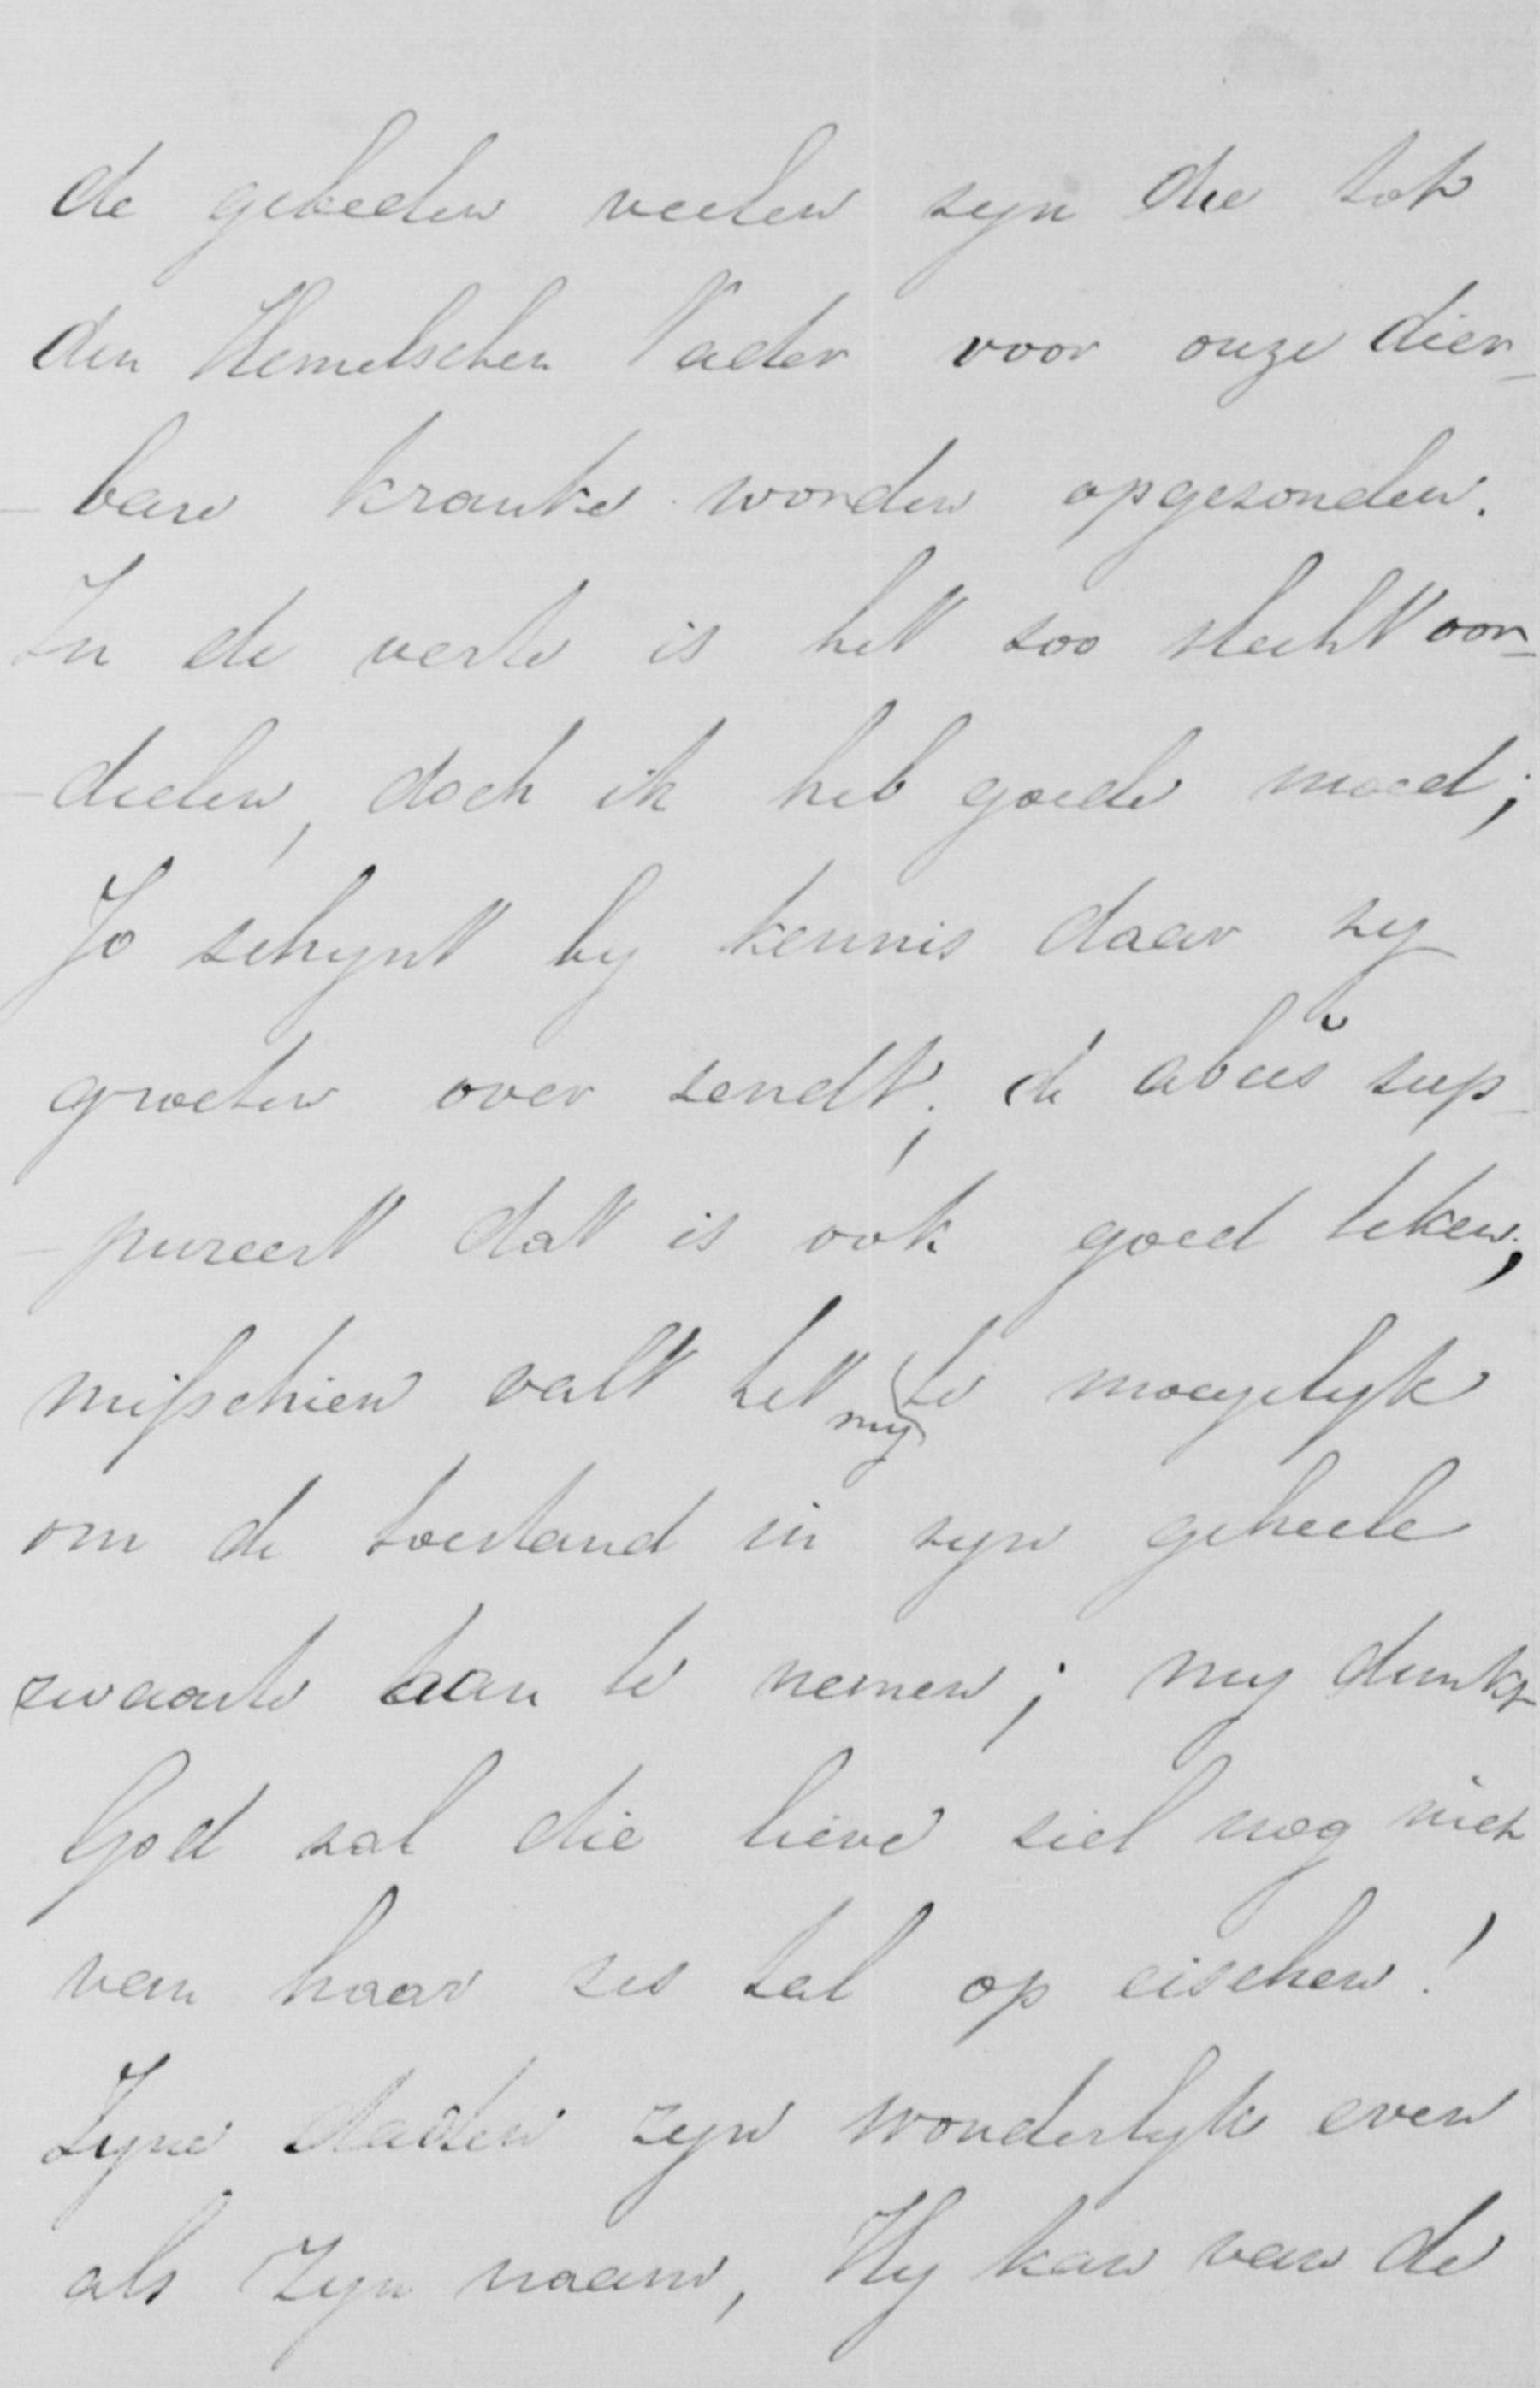 de gebeden veelen zyn die tot
den Hemelschen Vader voor onze dier-
-bare kranke worden opgezonden.
In de verte is het zoo slecht oor-
-deelen, doch ik heb goede moed;
Jo schynt by kennis daar zy
groeten over zendt; de abcĕs sup-
-pureert dat is ook goed teken;
misschien valt het my te moeyelyk
om de toestand in zyn geheele
zwaarte aan te nemen; my dunkt
God zal die lieve ziel nog niet
van haar zes tal op eischen!
Zyne daden zyn wonderlyk even
als Zyn naam, Hy kan van de